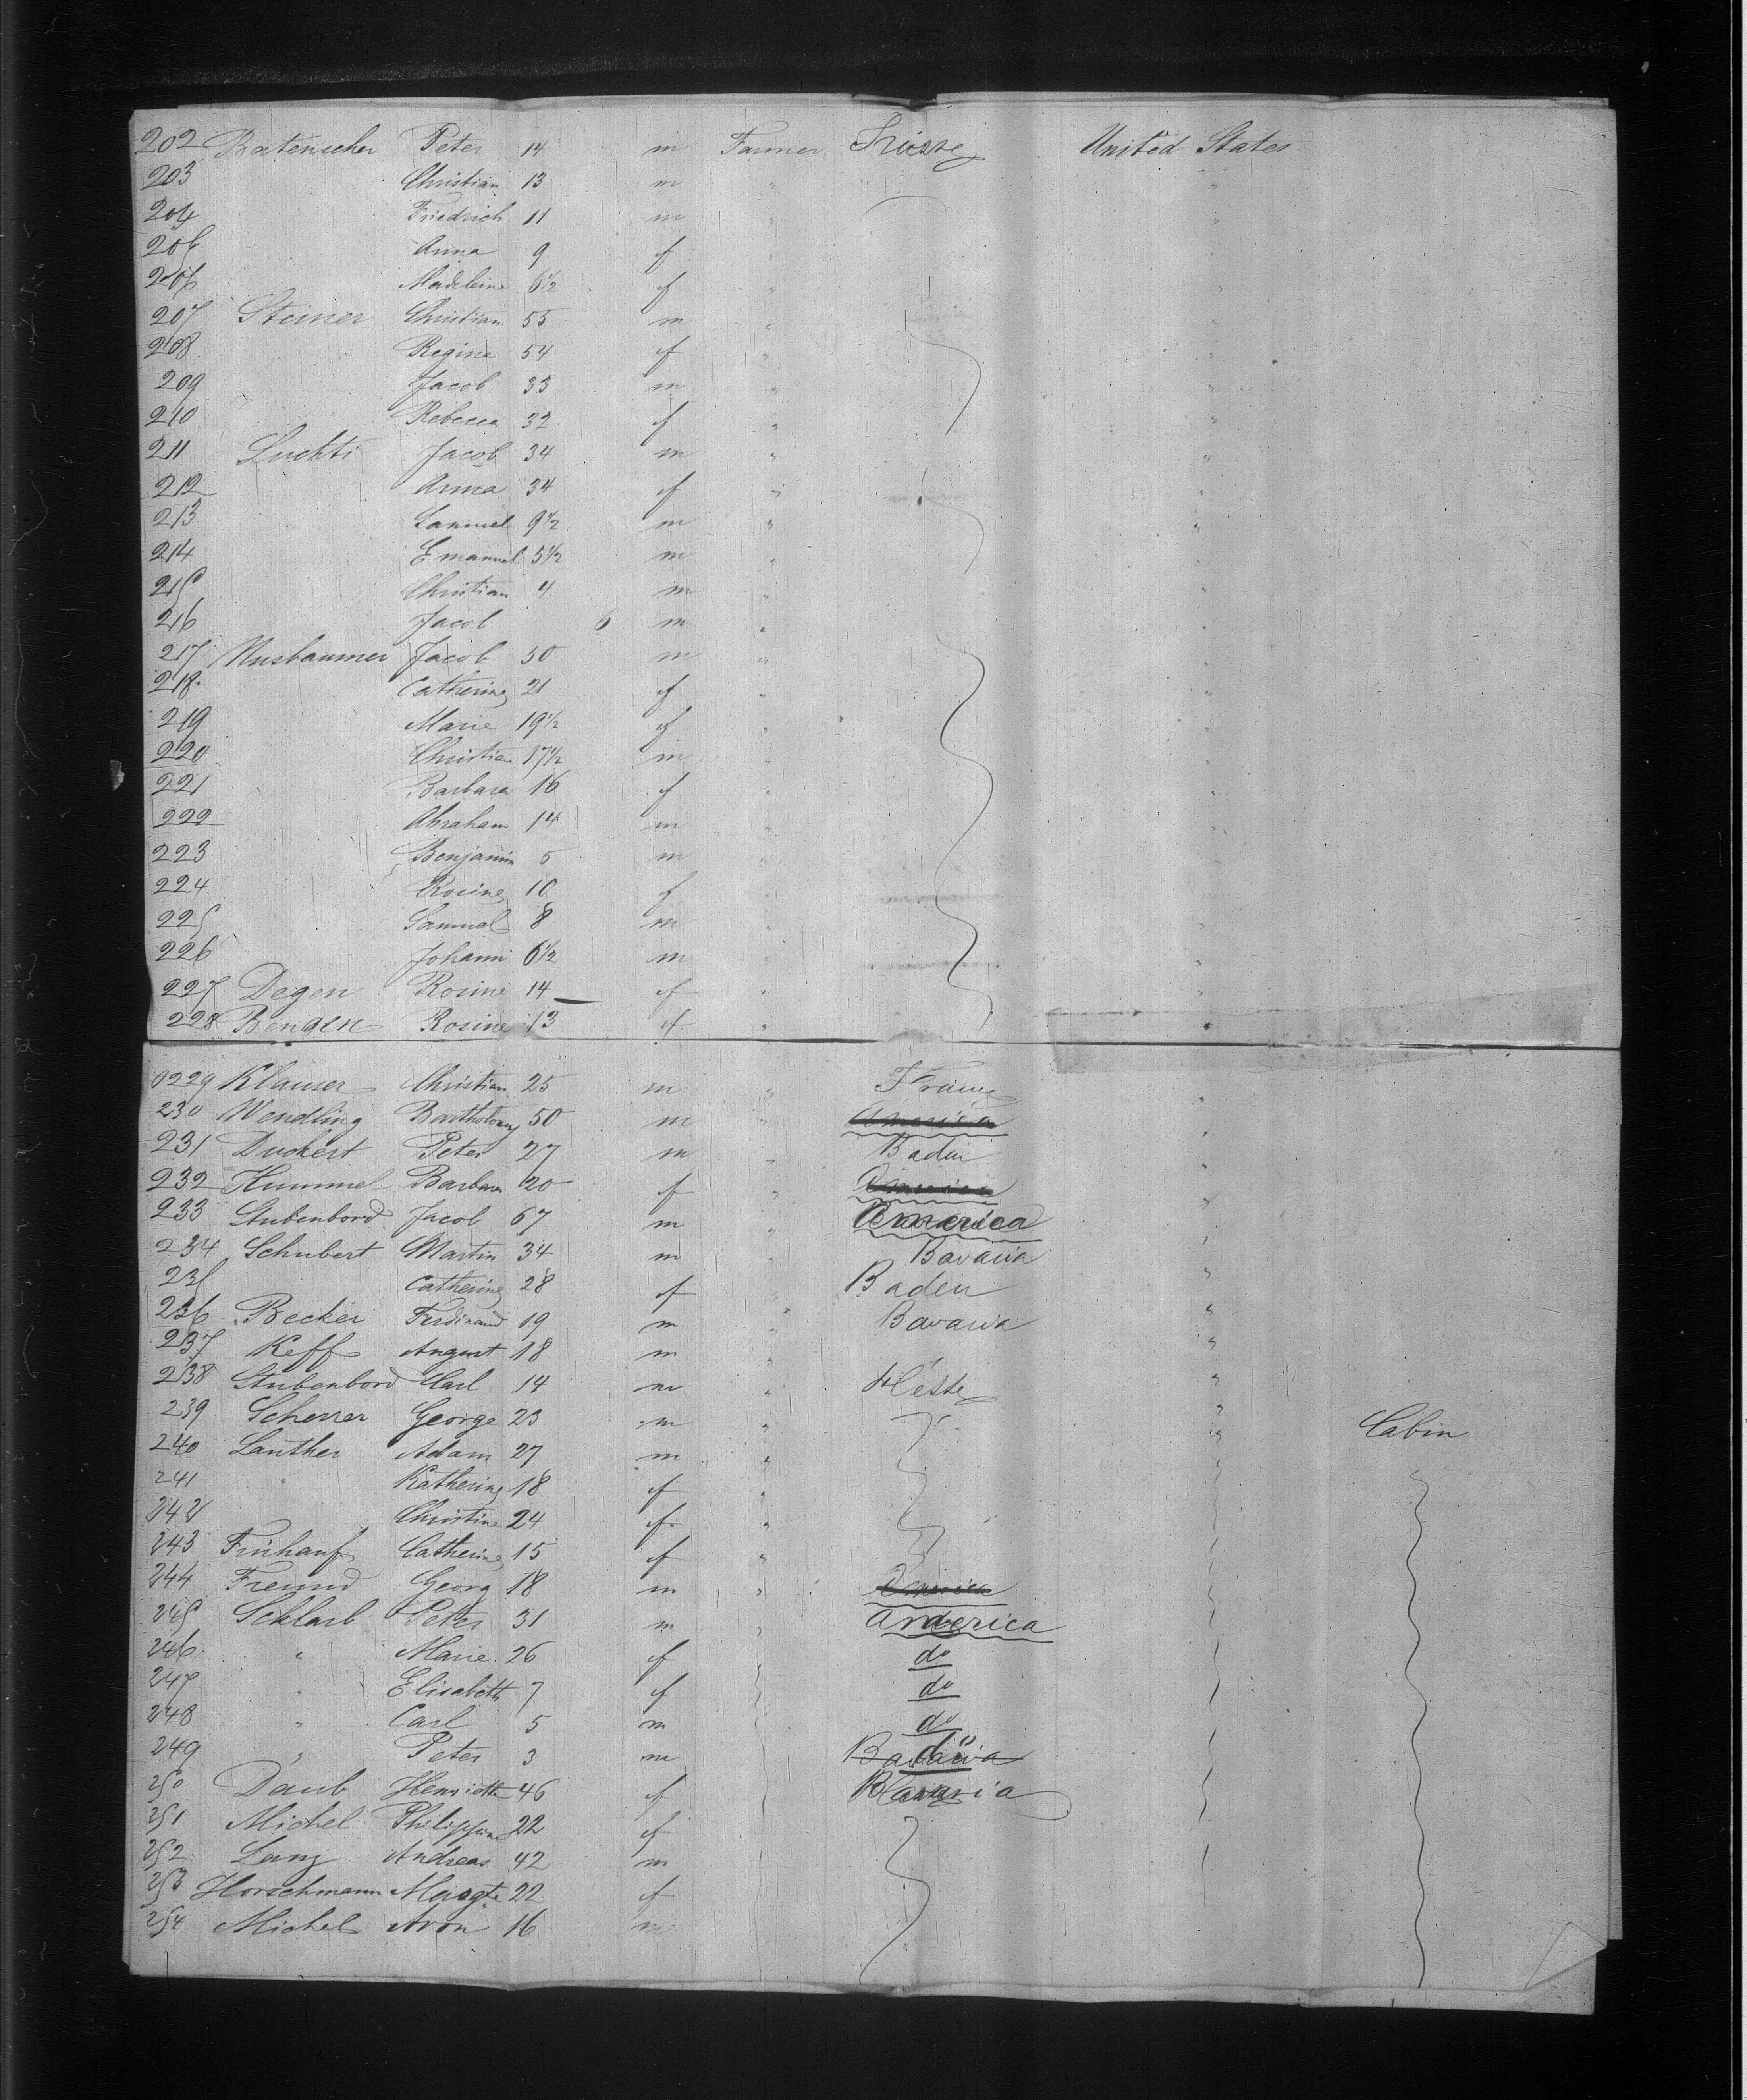 202 Batenscher Peter 14 m Farmer Suisse United States
203 Christian 13 m "
204 Friedrich 11 m " "
205 Anna 9 f " "
206 Madeleine 6½ f " "
207 Steiner Christian 55 m " "
208 Regina 54 f " "
209 Jacob 33 m " "
210 Rebecca 32 f " "
211 Luchti Jacob 34 m " "
212 Anna 34 f " "
213 Samuel 9½ m " "
214 Emanuel 5½ m " "
215 Christian 4 m " "
216 Jacob 6 m " "
217 Nusbaumer Jacob 50 m " "
218 Catherine 21 f " "
219 Marie 19½ f " "
220 Christian 17½ m " "
221 Barbara 16 f " "
222 Abraham 14 m " "
223 Benjamin 5 m " "
224 Rosine 10 f " "
225 Samuel 8 m " "
226 Johann 6½ m " "
227 Degen Rosine 14 f " "
228 Bengen Rosine 13 f " "
0229 Klauser Christian 25 m " "
230 Wendling Bartholomy 50 m " America "
231 Duckert Peter 27 m " Baden "
232 Hummel Barbara 20 f " America "
233 Stubenbord Jacob 67 m " America "
234 Schubert Martin 34 m " Bavaria "
235 Catherine 28 f " Baden "
236 Becker Ferdinand 19 m " Bavaria "
237 Keff August 18 m " "
238 Stubenbord Carl 14 m " Hesse "
239 Scherrer George 23 m " " Cabin
240 Lauther Adam 27 m " "
241 " Katherine 18 f "
242 Christine 24 f "
243 Frühauf Catherine 15 f "
244 Freund Georg 18 m " America
245 Schlarb Peter 31 m " America
246 " Marie 26 f do
247 " Elisabeth 7 f do
248 " Carl 5 m do
249 " Peter 3 m Bavaria do
250 Daub Henriette 46 f Bavaria
251 Michel Philippine 22 f
252 Lang Andreas 42 m
253 Horschmann Margte 22 f
254 Michel Aron 16 m